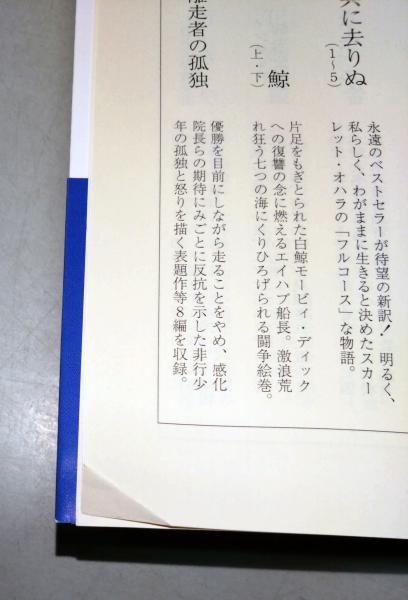 に去りぬ
（1～5）
永遠のベストセラーが待望の新訳！　明るく、
私らしく、わがままに生きると決めたスカー
レット・オハラの「フルコース」な物語。
鯨
（上・下）
片足をもぎとられた白鯨モービィ・ディック
への復讐の念に燃えるエイハブ船長。激浪荒
れ狂う七つの海にくりひろげられる闘争絵巻。
走者の孤独
優勝を目前にしながら走ることをやめ、感化
院長らの期待にみごとに反抗を示した非行少
年の孤独と怒りを描く表題作等8編を収録。